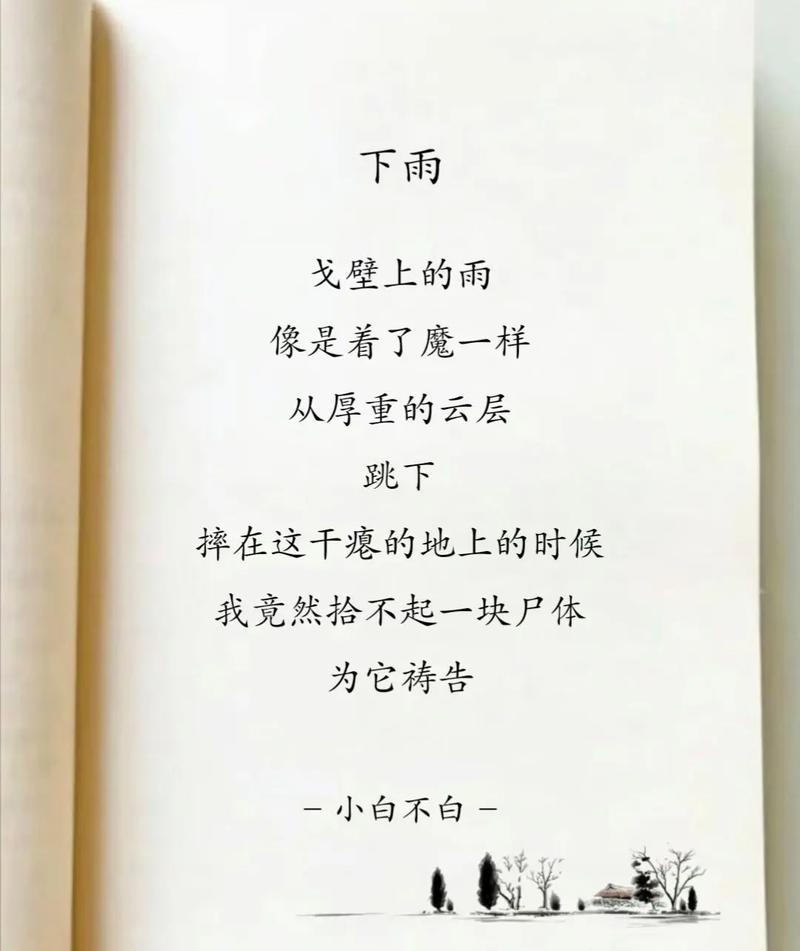 下雨
戈壁上的雨
像是着了魔一样
从厚重的云层
跳下
摔在这干瘪的地上的时候
我竟然拾不起一块尸体
为它祷告
– 小白不白 –